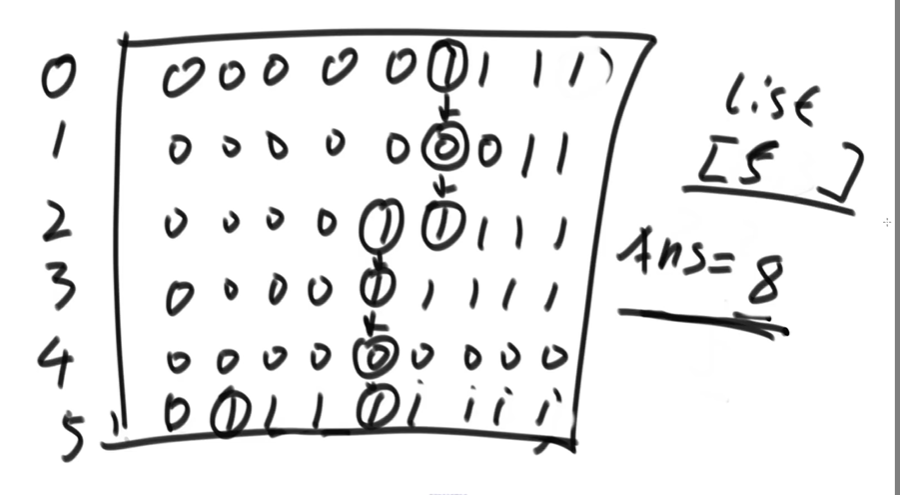 0 0 0 0 0 0 1 1 1 1 1
1 0 0 0 0 0 0 0 1 1
2 0 0 0 0 1 1 1 1 1
3 0 0 0 0 1 1 1 1 1
4 0 0 0 0 0 0 0 0 0
5 0 1 1 1 1 i i i i
list
[5 ]
Ans = 8